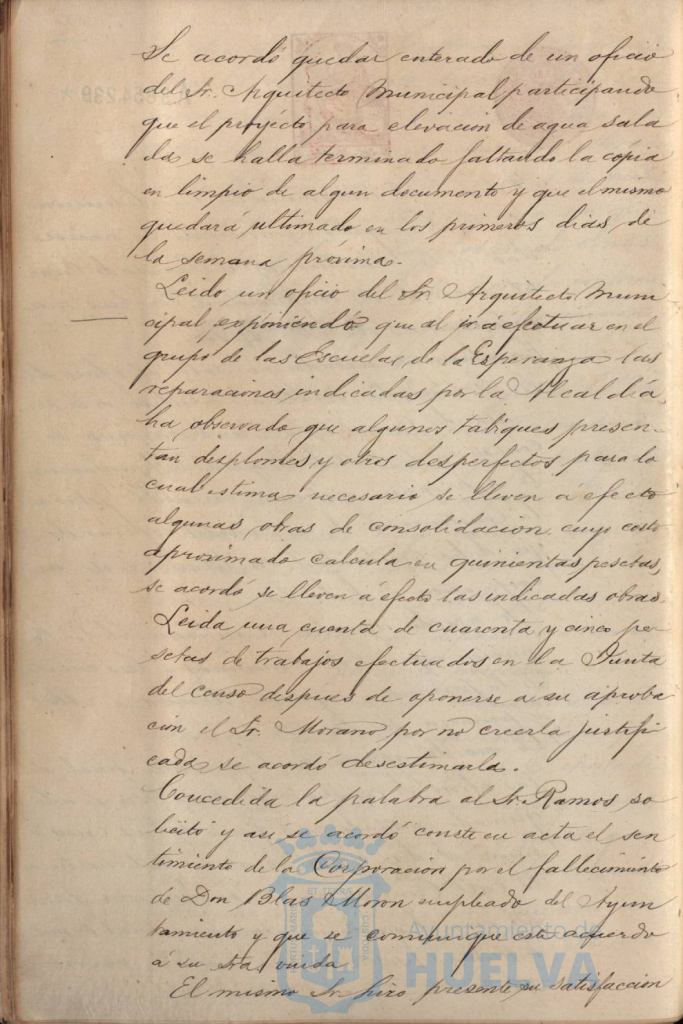 Se acordó quedar enterado de un oficio
del Sr. Arquitecto Municipal participando
que el proyecto para elevacion de agua sala
da se halla terminado faltando la cópia
en limpio de algun documento y que el mismo
quedará ultimado en los primeros dias de
la semana próxima.
Leido un oficio del Sr. Arquitecto Muni
cipal exponiendo que al ir á efectuar en el
grupo de las Escuelas de la Esperanza las
reparaciones indicadas por la Alcaldía,
ha observado que algunos tabiques presen-
tan desplomes y otros desperfectos para lo
cual estima necesario se lleven á efecto
algunas obras de consolidacion cuyo costo
aproximado calcula en quinientas pesetas,
se acordó se lleven á efecto las indicadas obras.
Leida una cuenta de cuarenta y cinco pe-
setas de trabajos efectuados en la Junta
del censo despues de oponerse á su aproba
cion el Sr. Morano por no creerla justifi
cada se acordó desestimarla.
Concedida la palabra al Sr. Ramos so
licitó y así se acordó conste en acta el sen
timiento de la Corporacion por el fallecimiento
de Don Blas Moron empleado del Ayun
tamiento y que se comunique este acuerdo
á su Sra. viuda.
El mismo Sr. hizo presente su satisfaccion
Ayuntamiento de
HUELVA